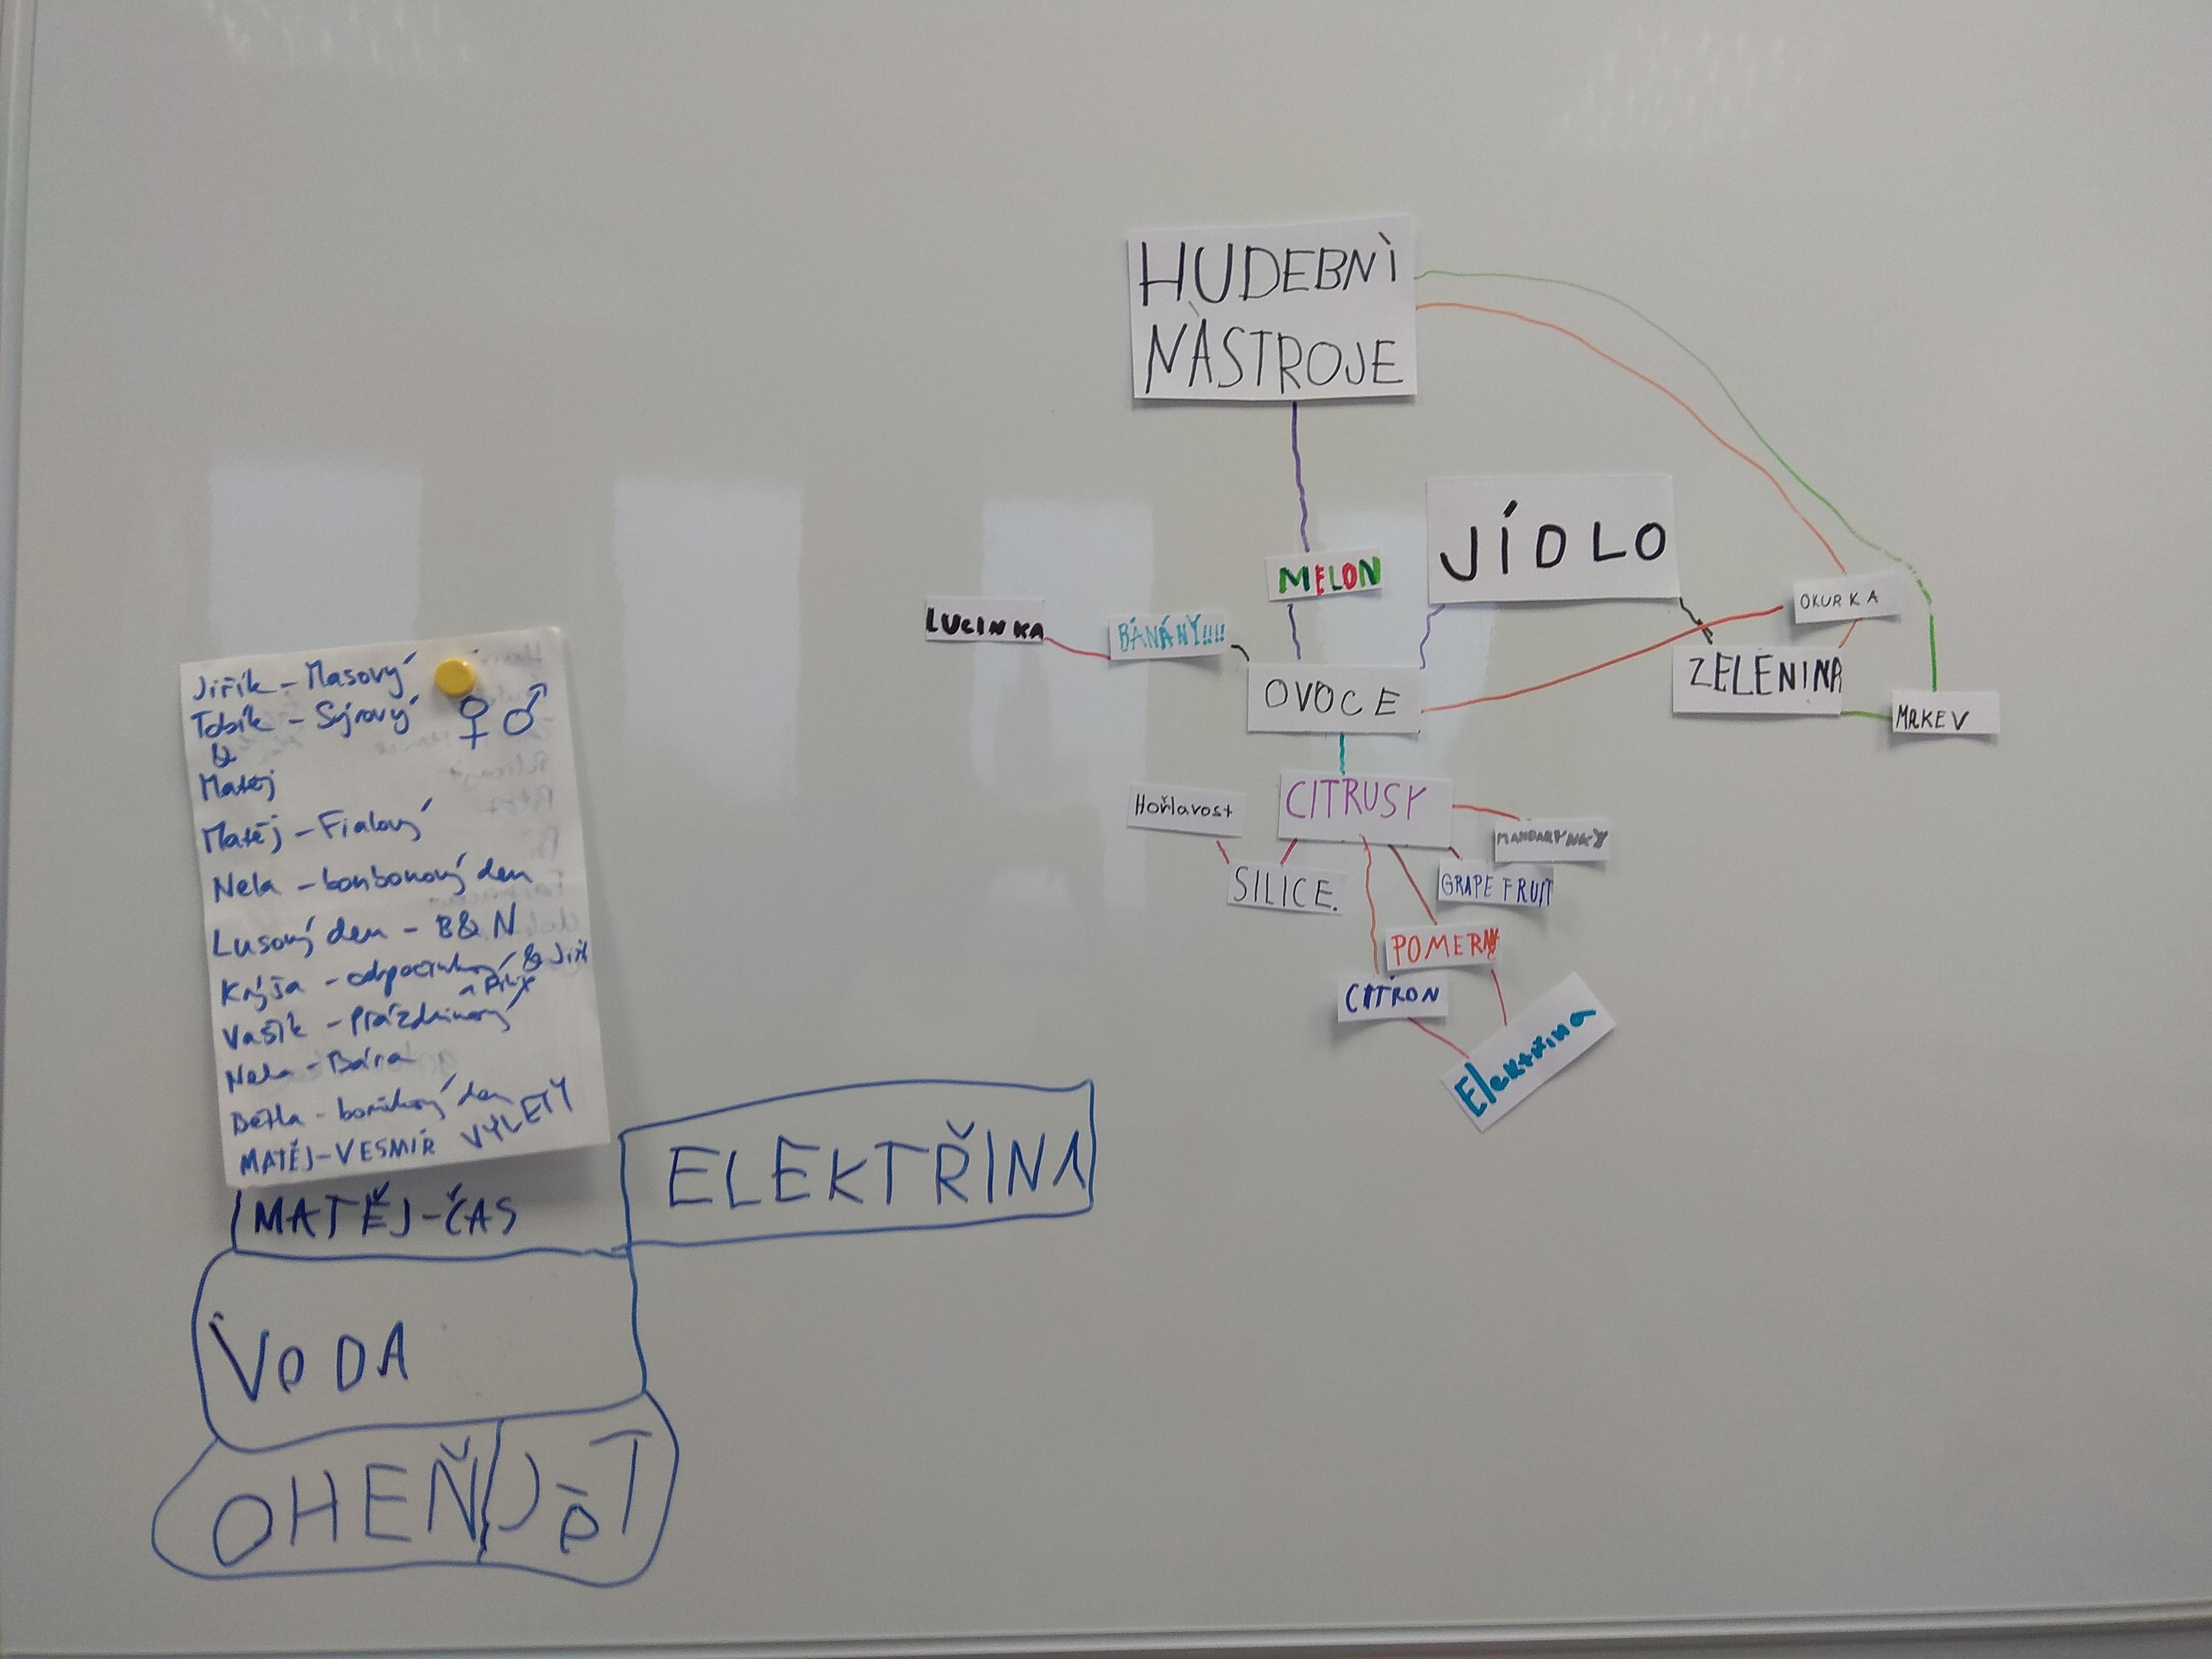 Jiřík - Masový
Tobík - Sýrový
&
Matěj
Matěj - Fialový
Nela - bonbonový den
Lusový den - B & N
Krýša - odpočinkový & Jiří
Vašík - Prázdninový
Nela - Bára
Bětka - den
MATĚJ-VESMÍR VÝLETY
MATĚJ-ČAS
ELEKTŘINA
VODA
OHEŇ JÈT
HUDEBNÌ
NÀSTROJE
JÍDLO
MELON
LUCINKA
BÁNÁNY!!!!
OVOCE
OKURKA
ZELENINA
MRKEV
CITRUSY
Hořlavost
SILICE.
MANDARYNKY
GRAPE FRUIT
POMERN
CITRON
Elektřina